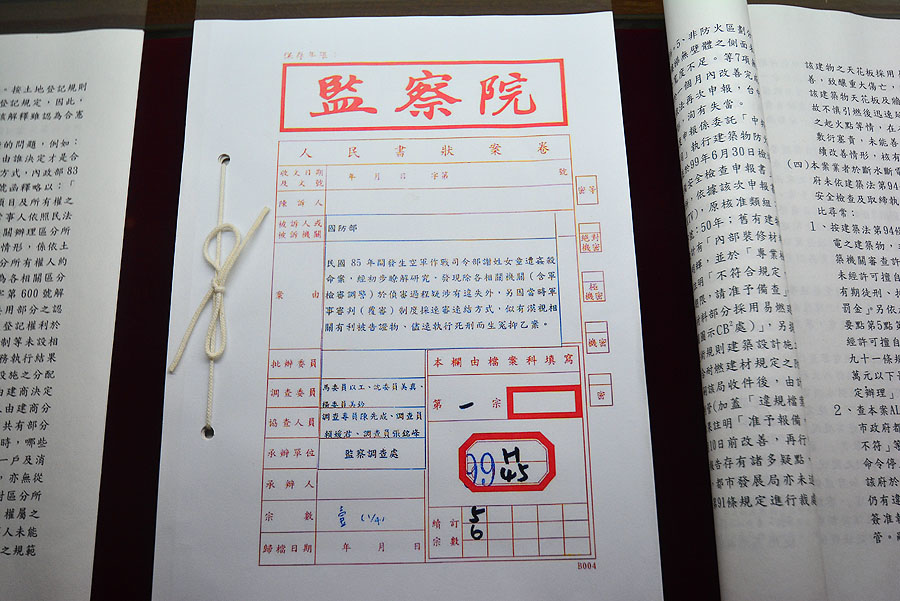 監察院
人民書狀案卷
收文日期及文號 年 月 日 字第 號
陳訴人
被訴人或被訴機關 國防部
案由
民國85年間發生空軍作戰司令部謝姓女童遭姦殺
命案,經初步瞭解研究,發現除各相關機關(含軍
檢審調警)於偵審過程疑涉有違失外,另因當時軍
事審判(覆審)制度採速審速結方式,似有漠視相
關有利被告證物、儘速執行死刑而生冤抑乙案。
批辦委員
調查委員 馬委員以工、沈委員美真、
楊委員美鈴
協查人員 調查專員陳先成、調查員
賴媛君、調查員張銘峰
承辦單位 監察調查處
承辦人
宗數 壹 (1/4)
歸檔日期 年 月 日
本欄由檔案科填寫
第 一 宗
99 H
45
續訂宗數 5
6
密等
絕對機密
極機密
機密
密
B004
。按土地登記規則
登記規定,因此,
該解釋雖認為合憲
的問題,例如:
由誰決定才是合
方式,內政部83
號函釋略以:「
項目及所有權之
事人依照民法
關辦理區分所
情形,係依土
分所有權人約
為各相關區分
字第600號解
用部分之認
登記權利於
制等未設相
務執行結果
設施之分配
由建商決定
由建商分
共有部分
時,哪些
一戶及消
,亦無從
對區分所
權屬之
人未能
之規範
5、非防火區劃分
無壁體之側面未
度不足。等7項
一個月內改善完成
再次申報,台中
洵有失當。
申報係委託「中
執行建築物防火
於99年6月30日檢
安全檢查申報書
依據該次申報書
,原核准類組
:50年;舊有建
有「內部裝修材
,並於「專業檢
明「不符合規定
限,請准予備查」
料部分採用易燃
圖示CB²處)」,另
術規則建築設計施
耐燃建材規定之
該局收件後,由
管(加蓋「違規檔案
註明「准予報備
10日前改善,再行
報告存有諸多疑點
都市發展局亦未
91條規定進行裁處
該建物之天花板採用
善,致釀重大傷亡,
該建築物天花板及牆
故不慎引燃後迅速延
之起火點等情,在
敷衍塞責,未能善
續改善情形,核有
(四)本案業者於斷水斷電
府未依建築法第94條
安全檢查及取締執
比尋常:
1、按建築法第94條
電之建築物,
築機關審查許
未經許可擅自
有期徒刑、拘
罰金。」另依
要點第5點第
經許可擅自
九十一條規
萬元以下
定辦理」
2、查本案AL
市政府都
不符」等
命令停
該府於
仍有違
簽准
管。